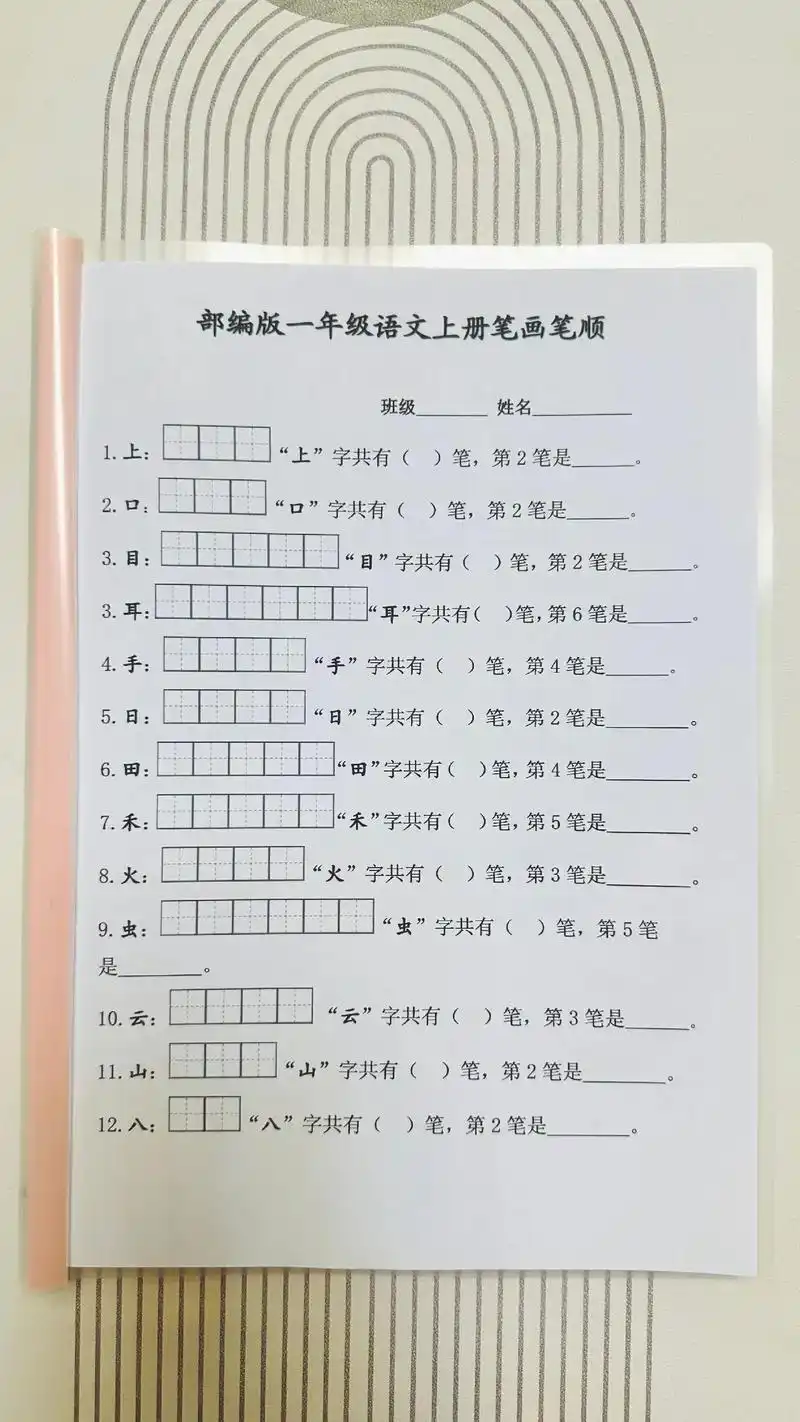 部编版一年级语文上册笔画笔顺
班级________ 姓名___________
1.上： “上”字共有（ ）笔，第2笔是______。
2.口： “口”字共有（ ）笔，第2笔是______。
3.目： “目”字共有（ ）笔，第2笔是______。
3.耳： “耳”字共有（ ）笔，第6笔是______。
4.手： “手”字共有（ ）笔，第4笔是______。
5.日： “日”字共有（ ）笔，第2笔是________。
6.田： “田”字共有（ ）笔，第4笔是________。
7.禾： “禾”字共有（ ）笔，第5笔是________。
8.火： “火”字共有（ ）笔，第3笔是________。
9.虫： “虫”字共有（ ）笔，第5笔
是________。
10.云： “云”字共有（ ）笔，第3笔是______。
11.山： “山”字共有（ ）笔，第2笔是________。
12.八： “八”字共有（ ）笔，第2笔是________。